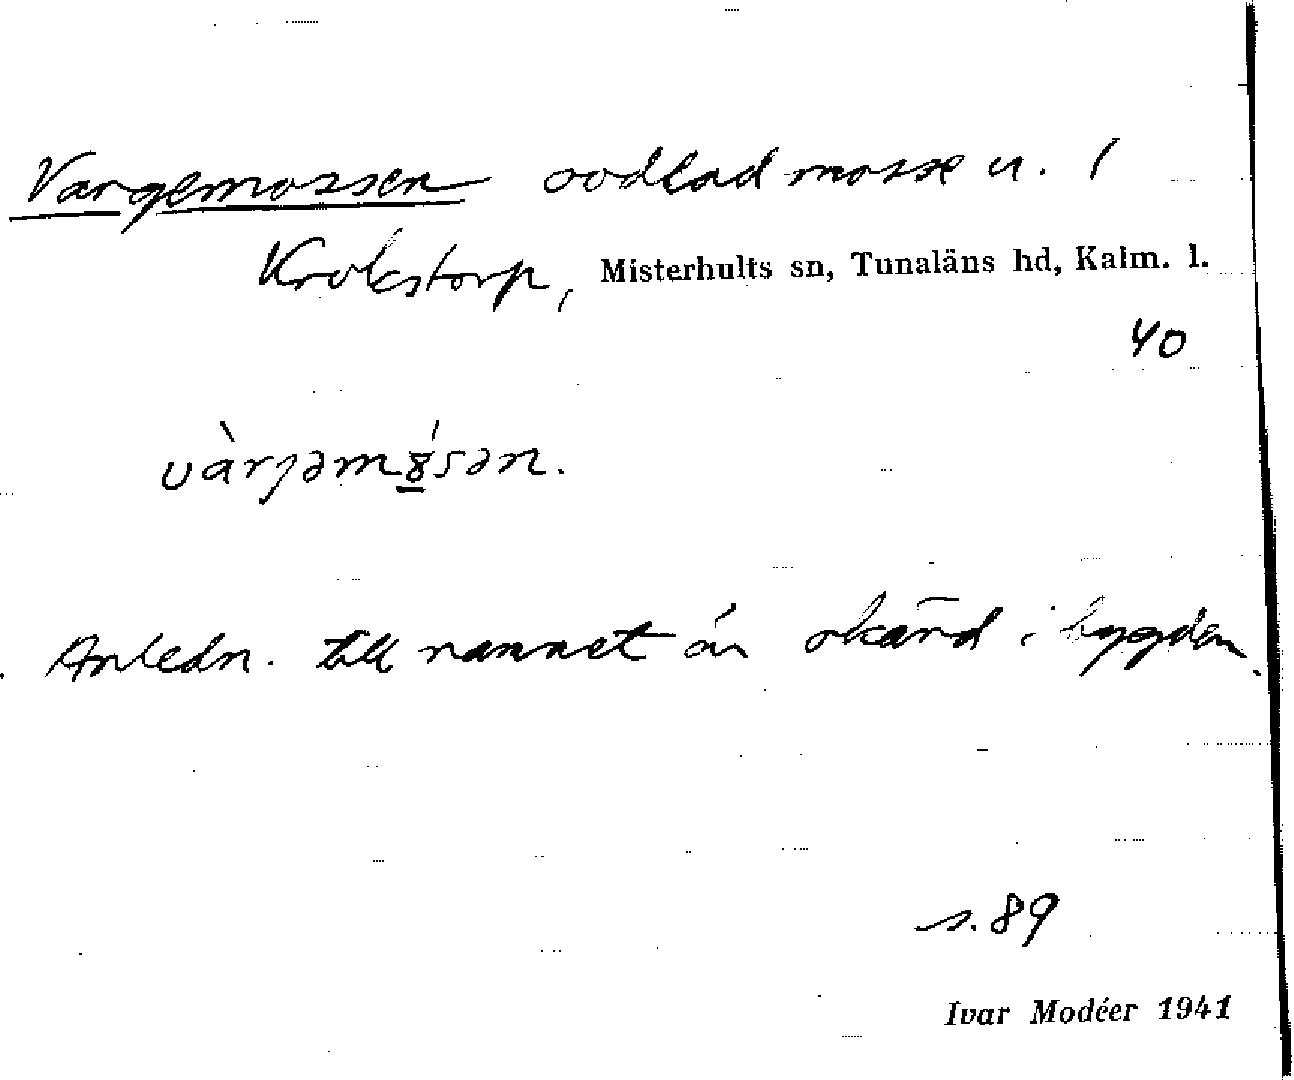 Vargemossen oodlad mosse u. /
Krokstorp, Misterhults sn, Tunaläns hd, Kalm. l.
40
vàrjəmȣ́sən.
Anledn. till namnet är okänd i bygden.
s. 89
Ivar Modéer 1941